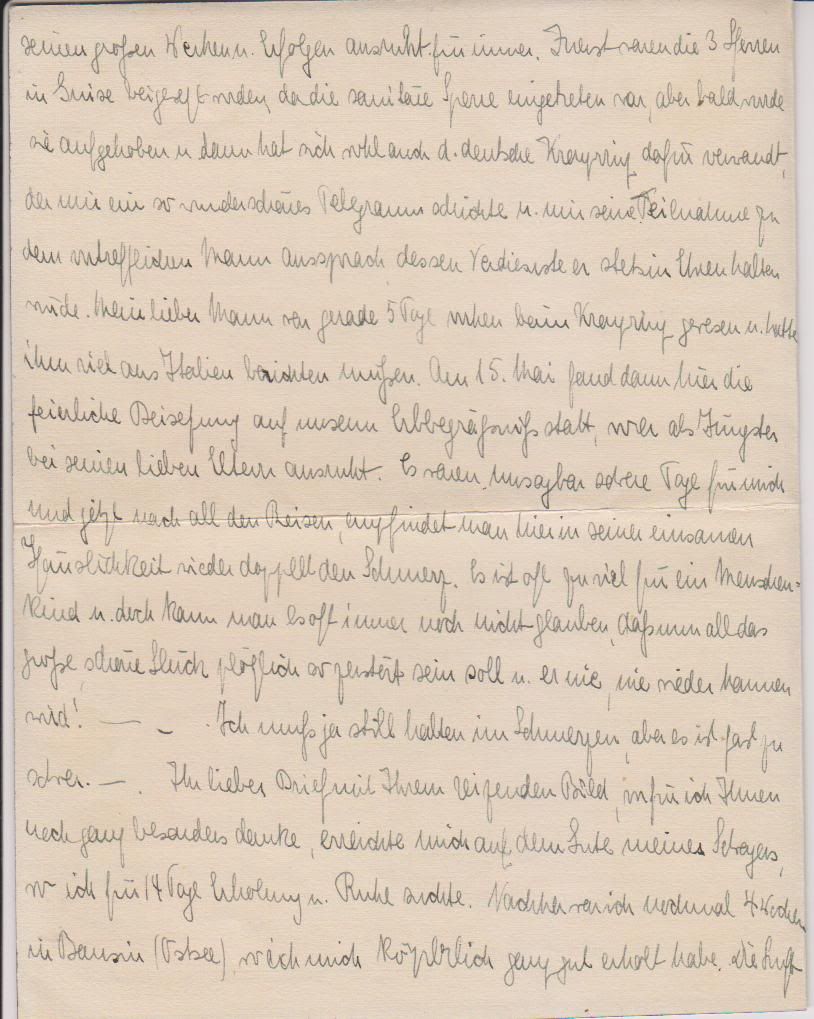 seinen großen Werken u. Erfolgen ausruht für immer. Zuerst waren die 3 Herren
in Guise beigesetzt worden, da die sanitäre Sperre eingetreten war, aber bald wurde
sie aufgehoben u. dann hat sich wohl auch d. deutsche Kronprinz dafür verwandt,
der mir ein so wunderschönes Telegramm schickte u. mir seine Teilnahme zu
dem vortrefflichen Mann aussprach, dessen Verdienste er stets in Ehren halten
würde. Mein lieber Mann war gerade 5 Tage vorher beim Kronprinz gewesen u. hatte
ihm viel aus Italien berichten müßen. Am 15. Mai fand dann hier die
feierliche Beisetzung auf unserm Erbbegräbniß statt, wo er als Jüngster
bei seinen lieben Eltern ausruht. Es waren unsagbar schwere Tage für mich
und jetzt nach all den Reisen, empfindet man hier in seiner einsamen
Häuslichkeit wieder doppelt den Schmerz. Es ist oft zu viel für ein Menschen=
kind u. doch kann man es oft immer noch nicht glauben, daß nun all das
große, schöne Glück plötzlich so zerstört sein soll u. er nie, nie wieder kommen
wird! — – . Ich muß ja still halten im Schmerzen, aber es ist fast zu
schwer. — . Ihr lieber Brief mit Ihrem reizenden Bild, wofür ich Ihnen
noch ganz besonders danke, erreichte mich auf dem Gute meines Schwagers,
wo ich für 14 Tage Erholung u. Ruhe suchte. Nachher war ich nochmal 4 Wochen
in Bansin (Ostsee), wo ich mich körperlich ganz gut erholt habe. Die Luft